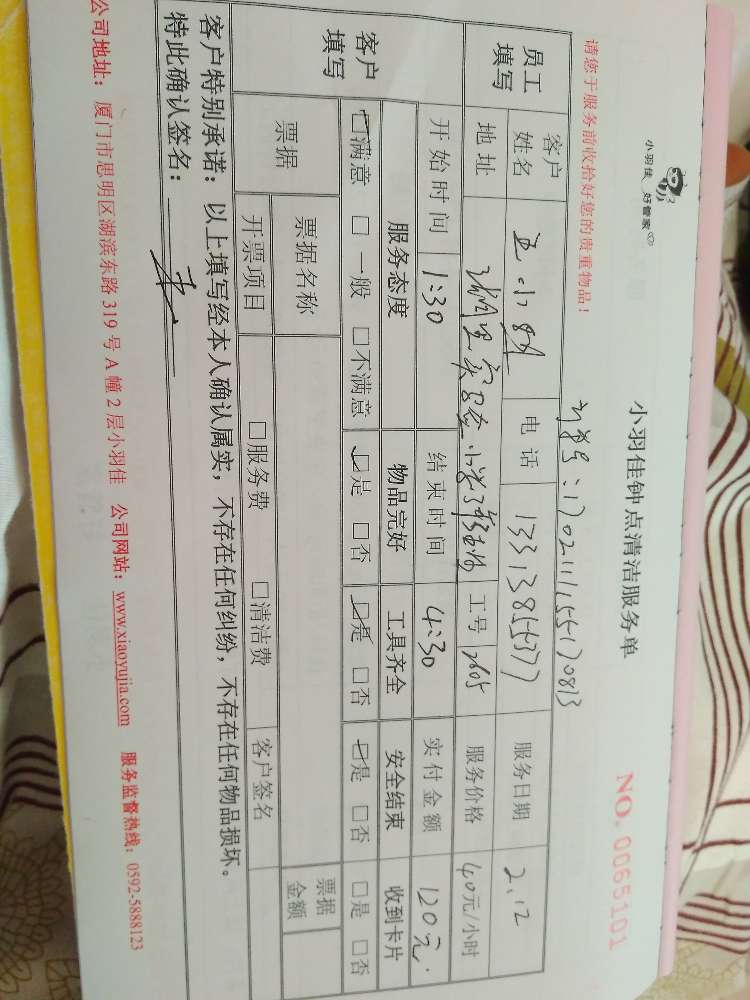 小羽佳 好管家
小羽佳钟点清洁服务单
NO. 0065101
请您于服务前收拾好您的贵重物品！
员工填写
客户姓名
电话 13313855377
服务日期 2.12
地址
工号 2605
服务价格 40元/小时
开始时间 1:30
结束时间 4:30
实付金额 120元.
客户填写
服务态度 物品完好 工具齐全 安全结束 收到卡片
☑满意 □一般 □不满意 ☑是 □否 ☑是 □否 ☑是 □否 □是 □否
票据 票据名称 票据金额
开票项目 □服务费 □清洁费 客户签名
客户特别承诺：以上填写经本人确认属实，不存在任何纠纷，不存在任何物品损坏。
特此确认签名：
公司地址：厦门市思明区湖滨东路 319 号 A 幢 2 层小羽佳 公司网站：www.xiaoyujia.com 服务监督热线：0592-5888123